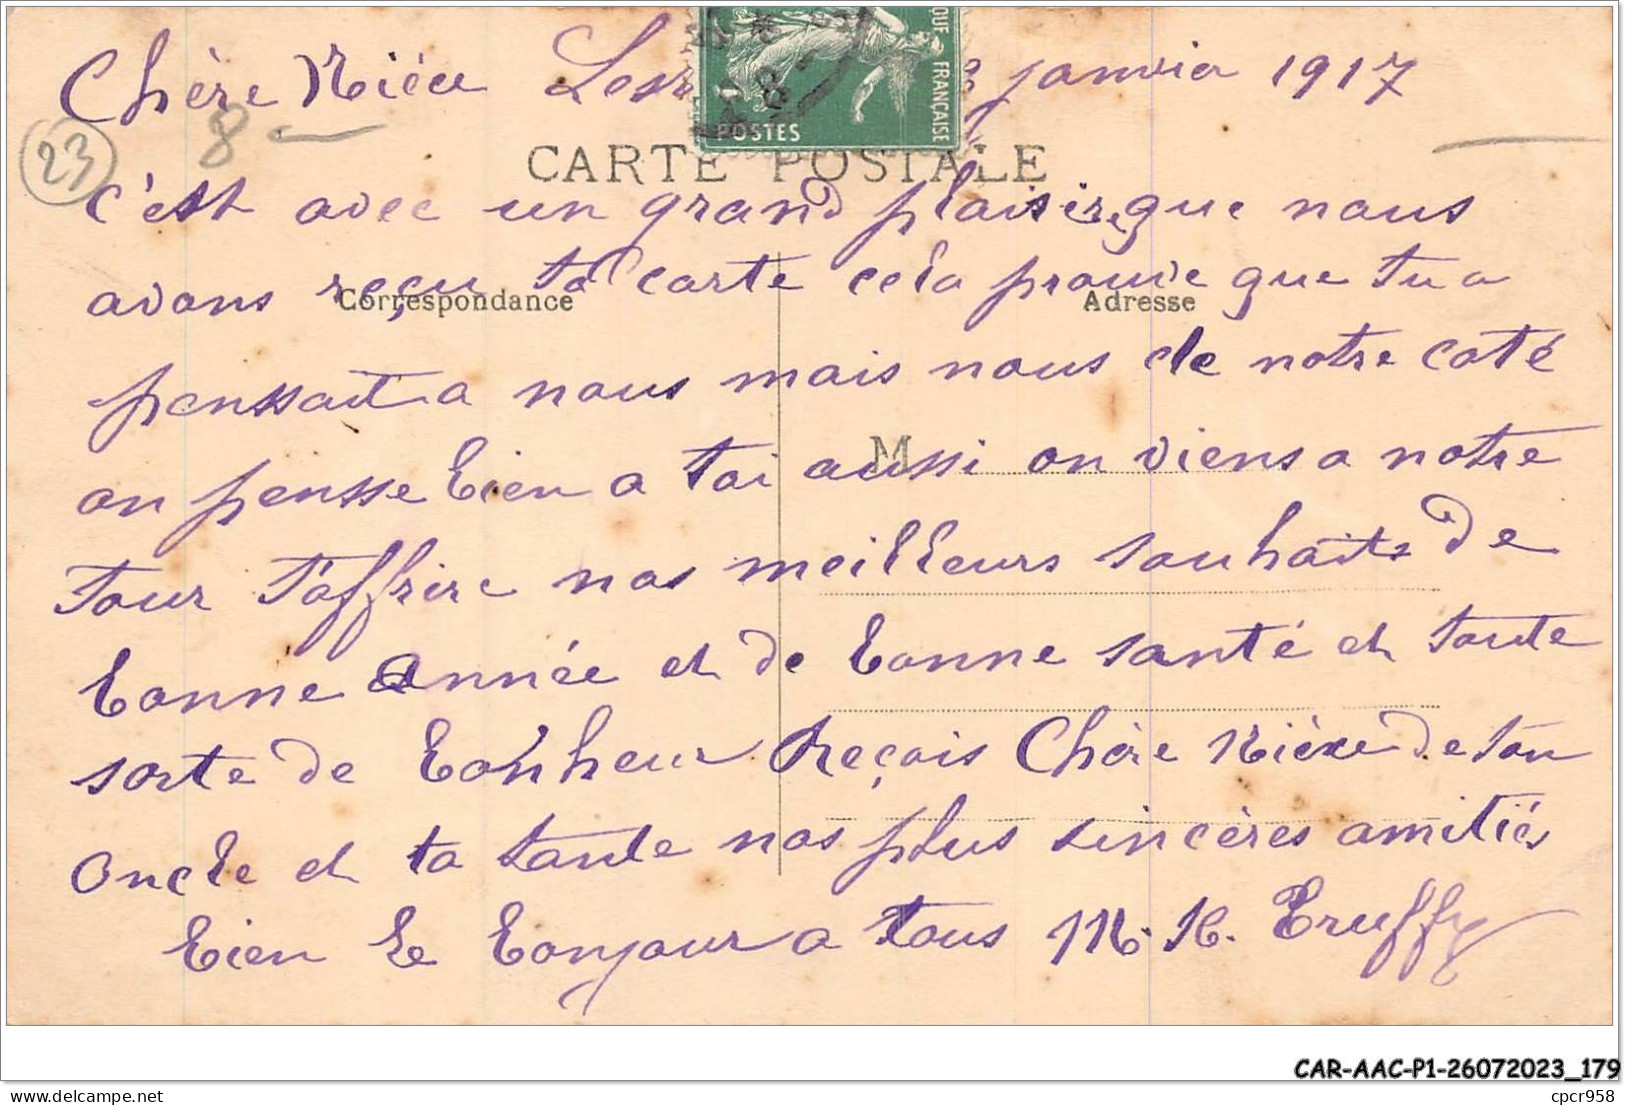 Chère Nièce janvier 1917
QUE FRANÇAISE
POSTES
8
23
CARTE POSTALE
c'est avec un grand plaisir que nous
avons reçu ta carte cela prouve que tu a
Correspondance Adresse
penssait a nous mais nous de notre coté
M
on pensse bien a toi aussi on viens a notre
tour t'offrire nos meilleurs souhaits de
bonne année et de bonne santé et toute
sorte de bonheur Reçois Chère Nièce de ton
oncle et ta tante nos plus sincères amitiés
bien le bonjour a tous M. N. Truffy
CAR-AAC-P1-26072023_179
delcampe.net
cpcr958